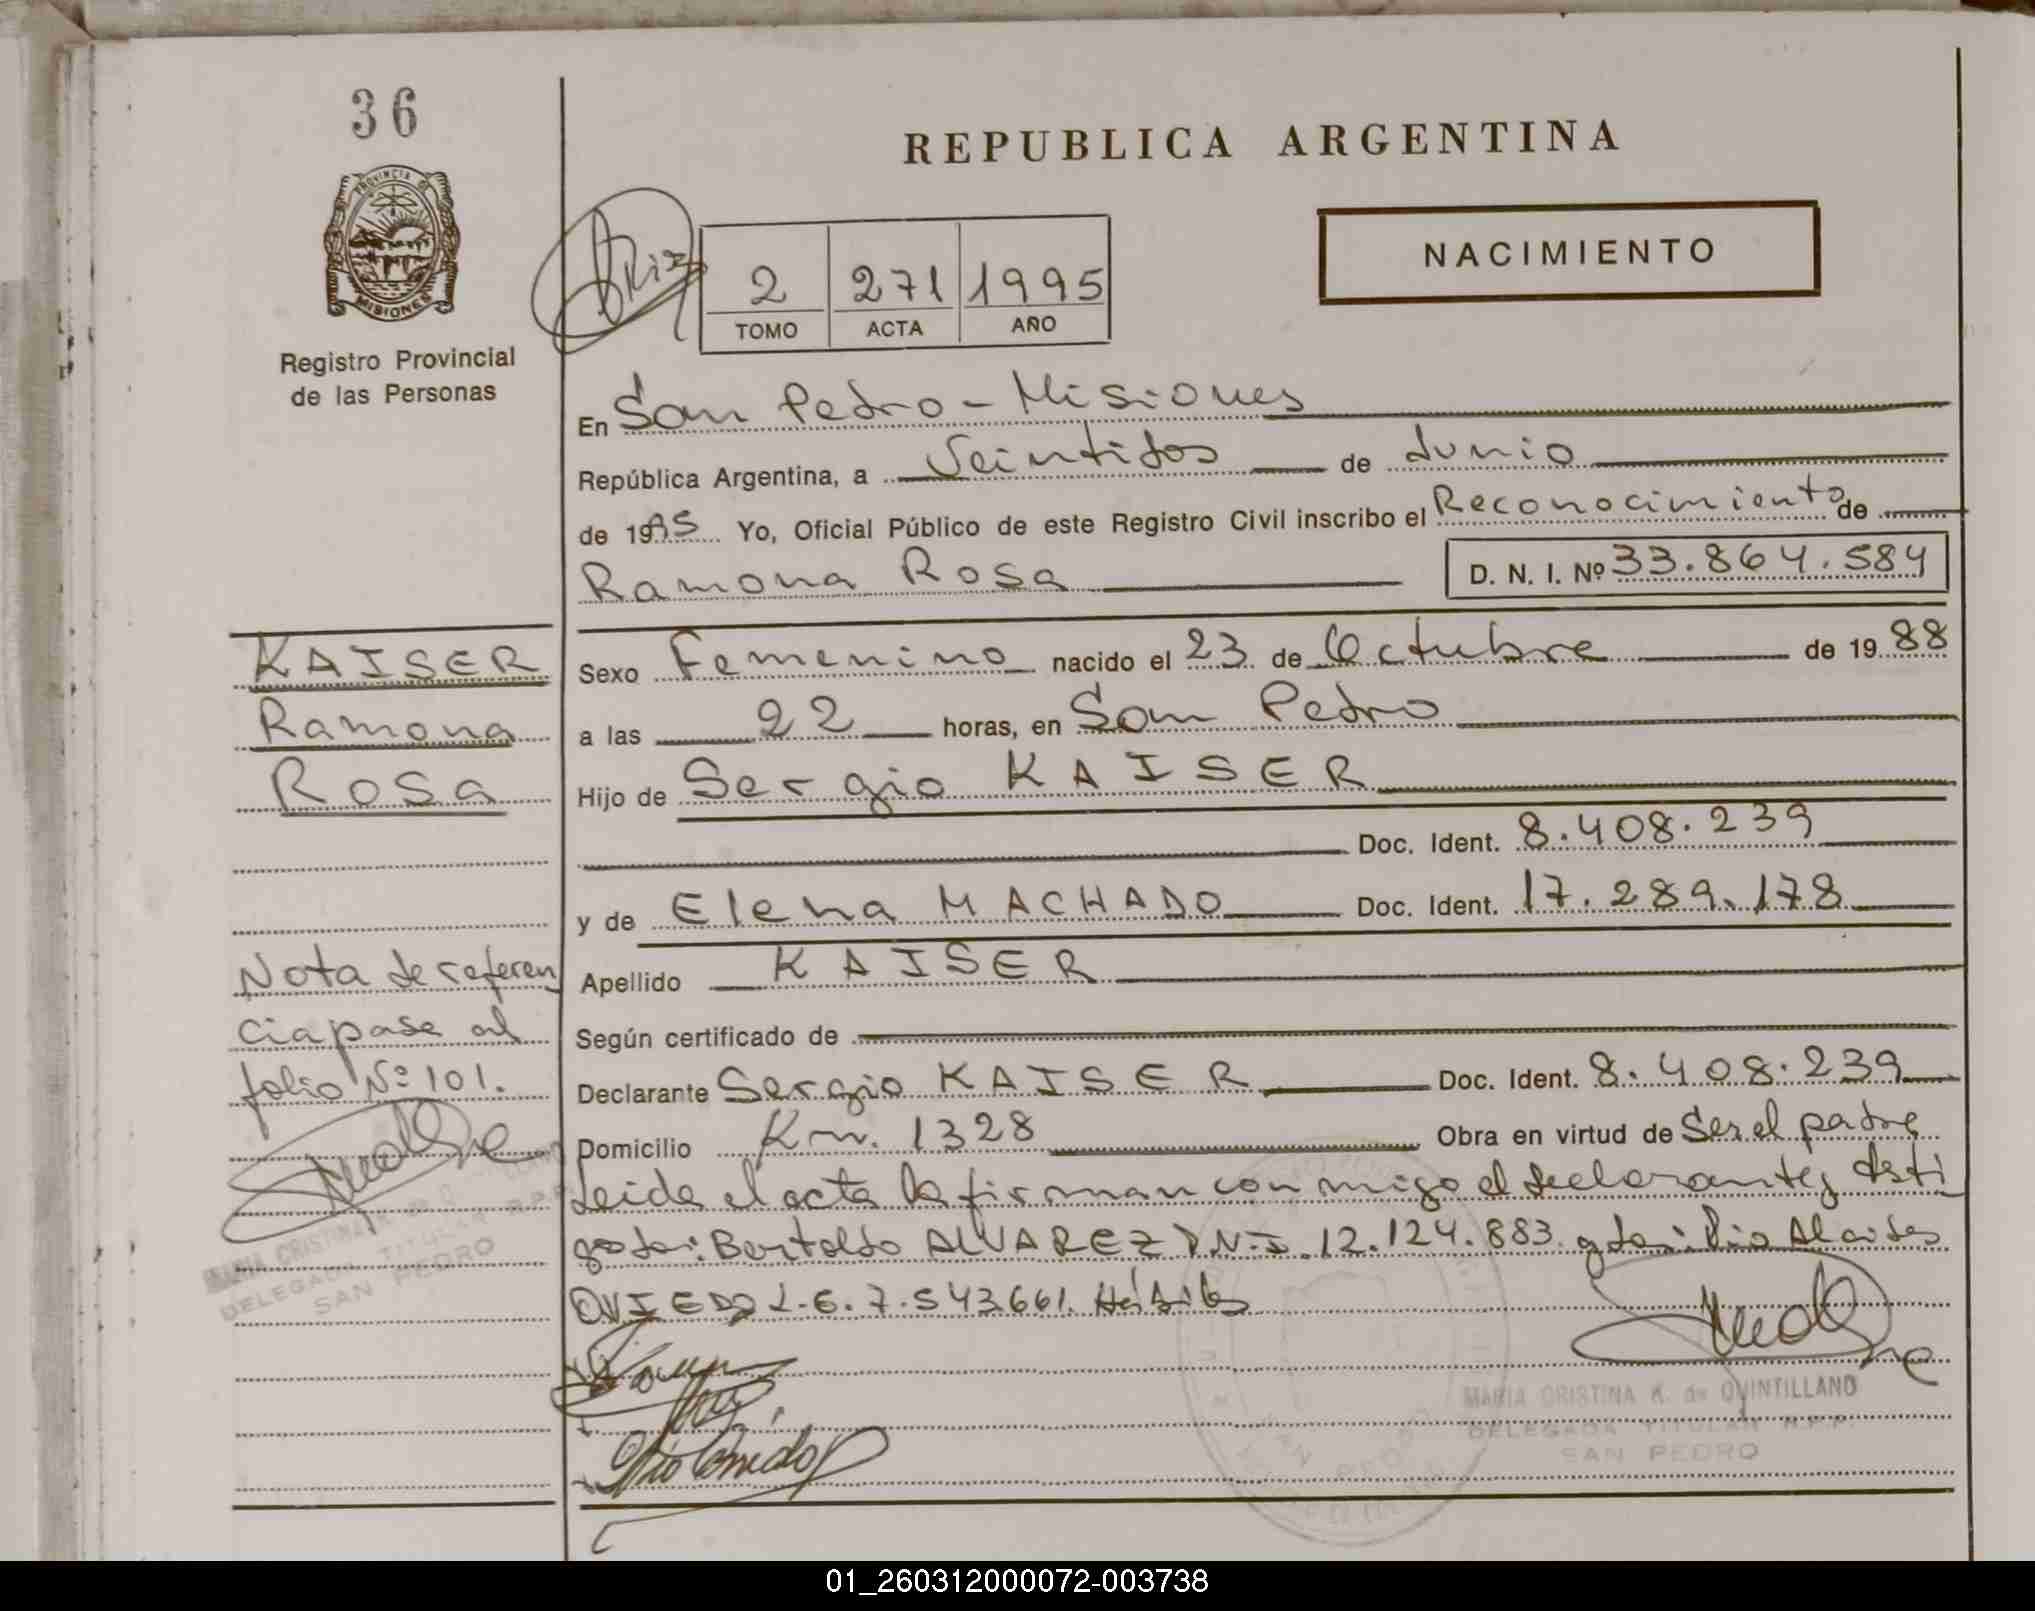 36
PROVINCIA DE
MISIONES
Registro Provincial
de las Personas
REPUBLICA ARGENTINA
NACIMIENTO
2 271 1995
TOMO ACTA AÑO
En San Pedro - Misiones
República Argentina, a Veintidos de Junio
de 1995 Yo, Oficial Público de este Registro Civil inscribo el Reconocimiento de
Ramona Rosa D. N. I. Nº 33.864.584
KAISER
Ramona
Rosa
Sexo Femenino nacido el 23 de Octubre de 19 88
a las 22 horas, en San Pedro
Hijo de Sergio KAISER
Doc. Ident. 8.408.239
y de Elena MACHADO Doc. Ident. 17.289.178
Apellido KAISER
Según certificado de
Declarante Sergio KAISER Doc. Ident. 8.408.239
Domicilio Km. 1328 Obra en virtud de Ser el padre
Leida el acta la firman conmigo el declarante y testi
gos Bertoldo ALVAREZ D.N.I. 12.124.883 y Alcides
OVIEDO L.E. 7.543.661. Hábiles
Nota de referen
cia pase al
folio Nº 101.
DELEGADA TITULAR R.P.P.
SAN PEDRO
MARIA CRISTINA K. de QUINTILLAND
DELEGADA TITULAR R.P.P.
SAN PEDRO
01_260312000072-003738